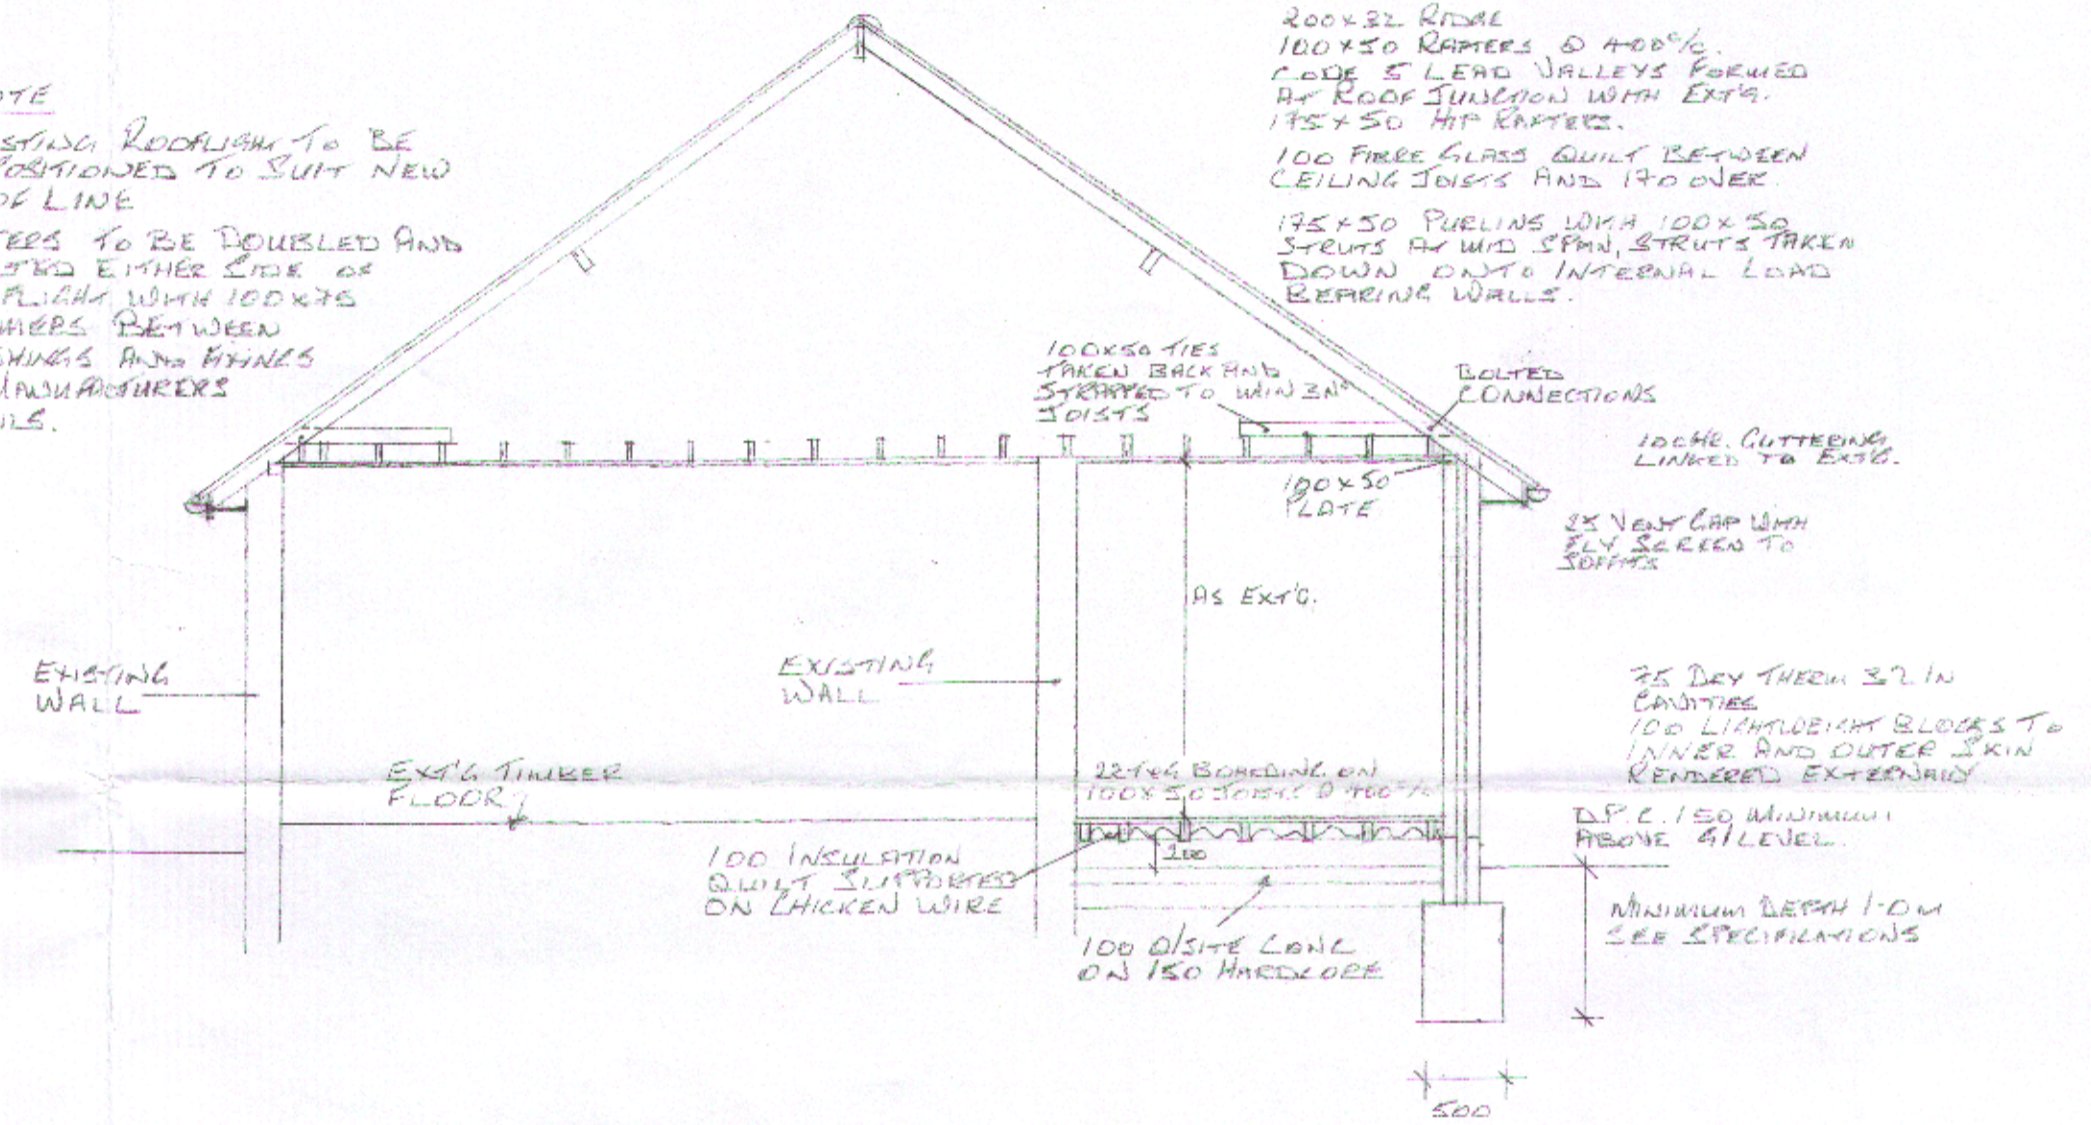 OTE
STING ROOFLIGHT TO BE
POSITIONED TO SUIT NEW
OF LINE
TERS TO BE DOUBLED AND
TED EITHER SIDE OF
FLIGHT WITH 100x75
MERS BETWEEN
SHINGS AND FIXINGS
MANUFACTURERS
ILS.
200x32 RIDGE
100x50 RAFTERS @ 400c/c.
CODE 5 LEAD VALLEYS FORMED
AT ROOF JUNCTION WITH EXT'G.
175x50 HIP RAFTERS.
100 FIBRE GLASS QUILT BETWEEN
CEILING JOISTS AND 170 OVER.
175x50 PURLINS WITH 100x50
STRUTS AT MID SPAN, STRUTS TAKEN
DOWN ONTO INTERNAL LOAD
BEARING WALLS.
100x50 TIES
TAKEN BACK AND
STRAPPED TO MIN 3No
JOISTS
BOLTED
CONNECTIONS
100HR. GUTTERING
LINKED TO EXT'G.
100x50
PLATE
25 VENT GAP WITH
FLY SCREEN TO
SOFFITS
AS EXT'G.
EXISTING
WALL
EXISTING
WALL
75 DRY THERM 32 IN
CAVITIES
100 LIGHTWEIGHT BLOCKS TO
INNER AND OUTER SKIN
RENDERED EXTERNALLY
EXT'G TIMBER
FLOOR
22 T&G BOARDING ON
100x50 JOISTS @ 400c/c
D.P.C. 150 MINIMUM
ABOVE G/LEVEL.
200
100 INSULATION
QUILT SUPPORTED
ON CHICKEN WIRE
100 O/SITE CONC
ON 150 HARDCORE
MINIMUM DEPTH 1-0M
SEE SPECIFICATIONS
500